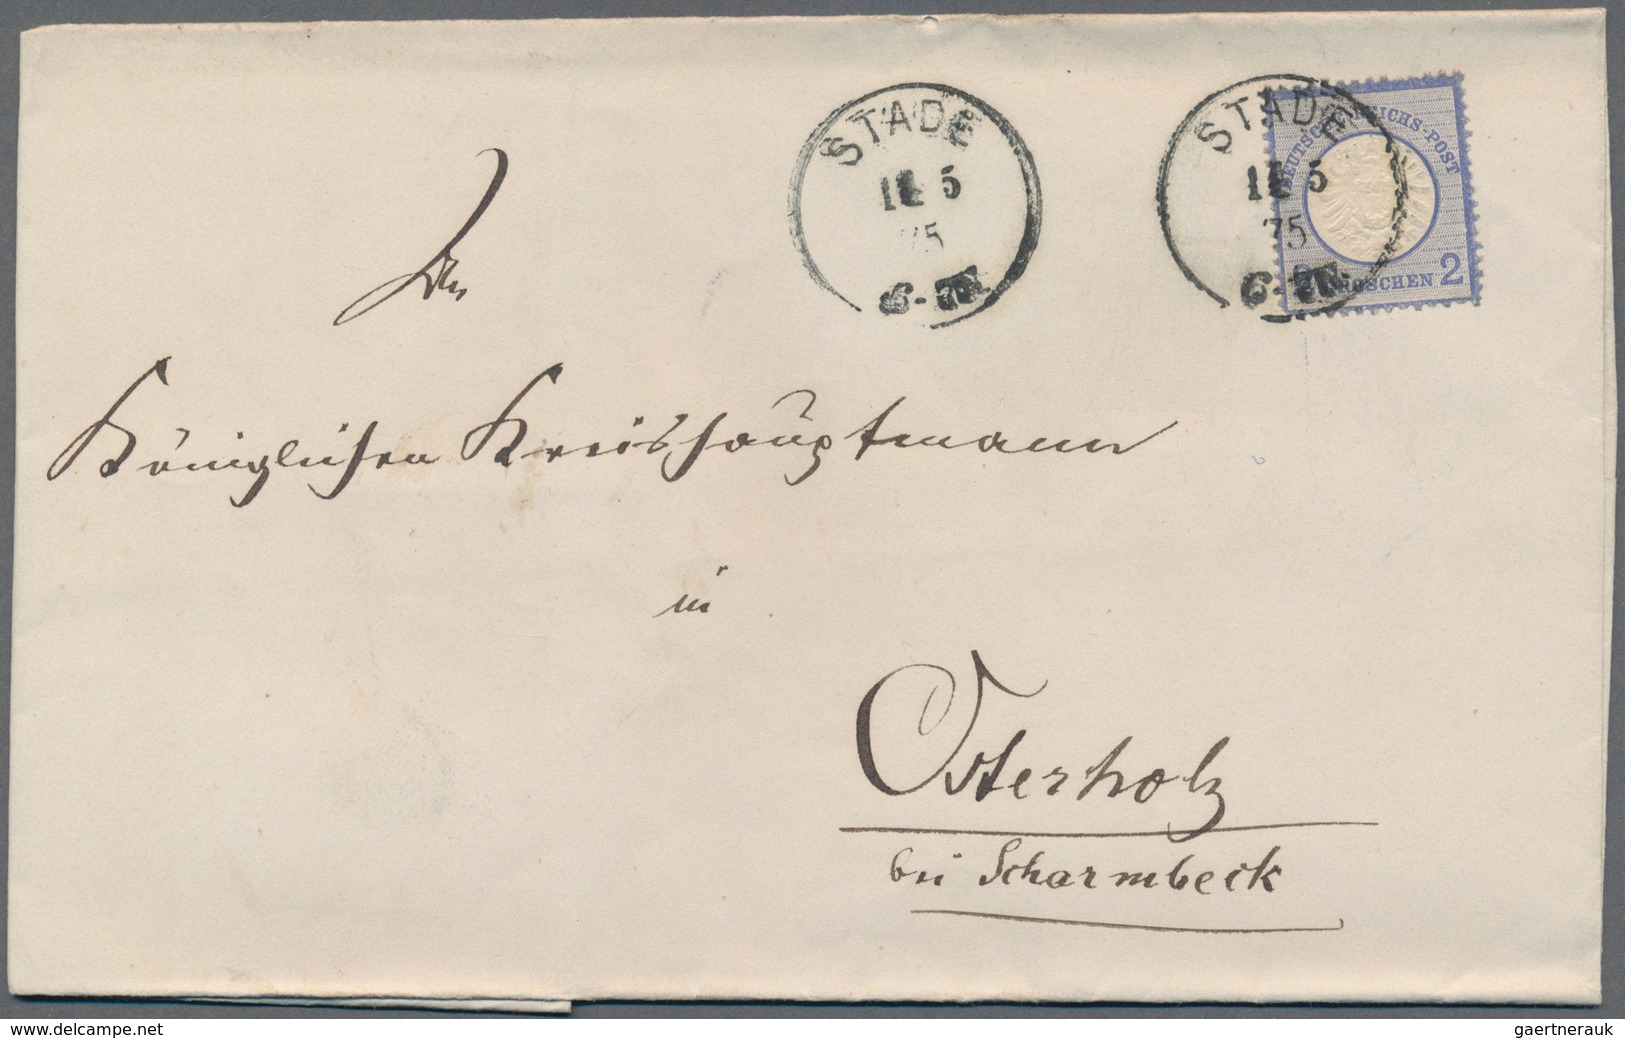 STADE
5
75
STADE
5
75
DEUTSCHE REICHS-POST
GROSCHEN 2
Dem
Königlichen Kreishauptmann
in
Osterholz
bei Scharmbeck
www.delcampe.net
gaertnerauk